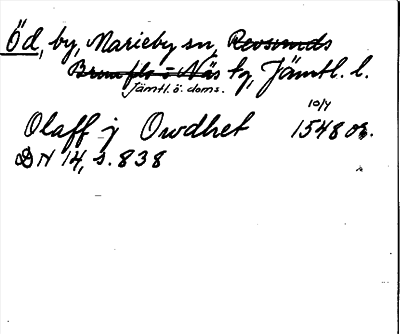 Öd, by, Marieby sn, Revsunds
Brunflo o Näs tg, Jämtl. l.
Jämtl. ö. doms.
10/4
Olaff j Owdhet 1548 or.
DN 14, s. 838